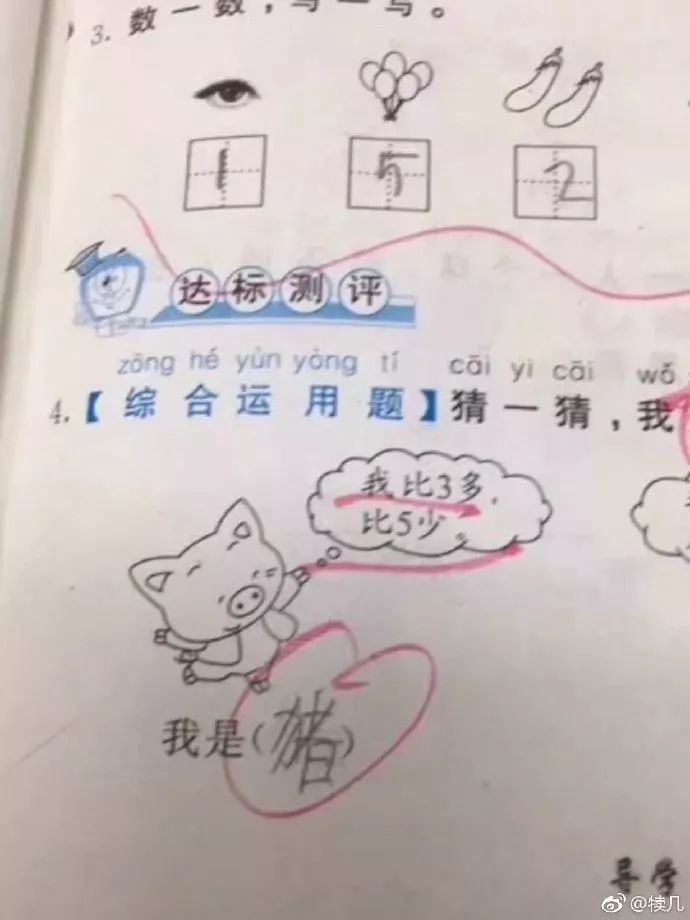 3. 数一数,写一写。
1 5 2
达标测评
zōng hé yùn yòng tí cāi yi cāi wǒ
4.【综合运用题】猜一猜,我
我比3多,
比5少。
我是(猪)
导学
@犊几